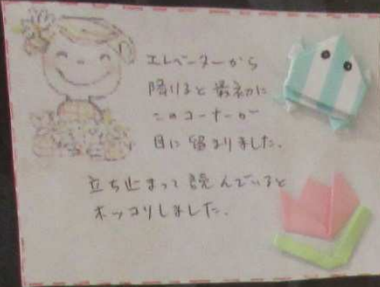 エレベーターから
降りると最初に
このコーナーが
目に留まりました.
立ち止まって読んでいると
ホッコリしました.